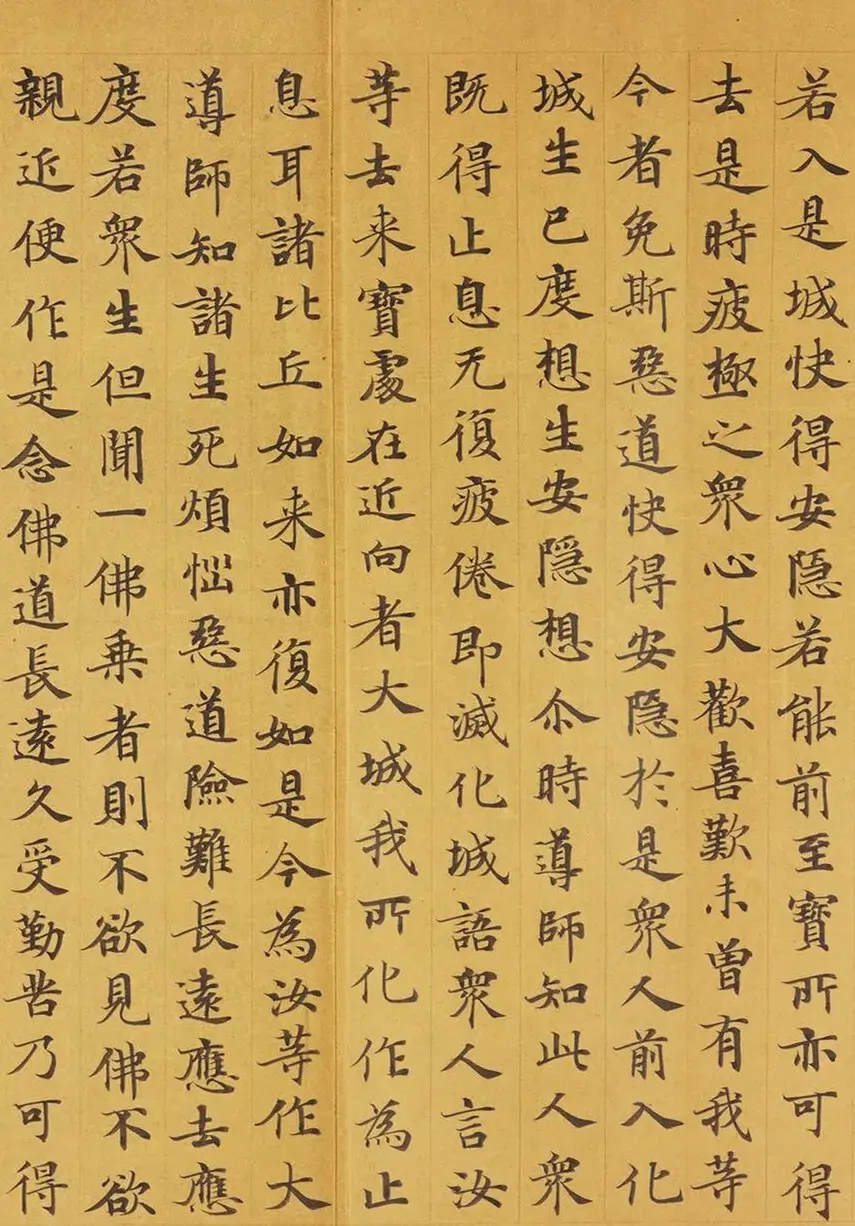 若入是城快得安隱若能前至寶所亦可得
去是時疲極之衆心大歡喜歎未曾有我等
今者免斯惡道快得安隱於是衆人前入化
城生已度想生安隱想尒時導師知此人衆
既得止息无復疲倦即滅化城語衆人言汝
等去来寶處在近向者大城我所化作為止
息耳諸比丘如来亦復如是今為汝等作大
導師知諸生死煩惱惡道險難長遠應去應
度若衆生但聞一佛乗者則不欲見佛不欲
親近便作是念佛道長遠久受勤苦乃可得